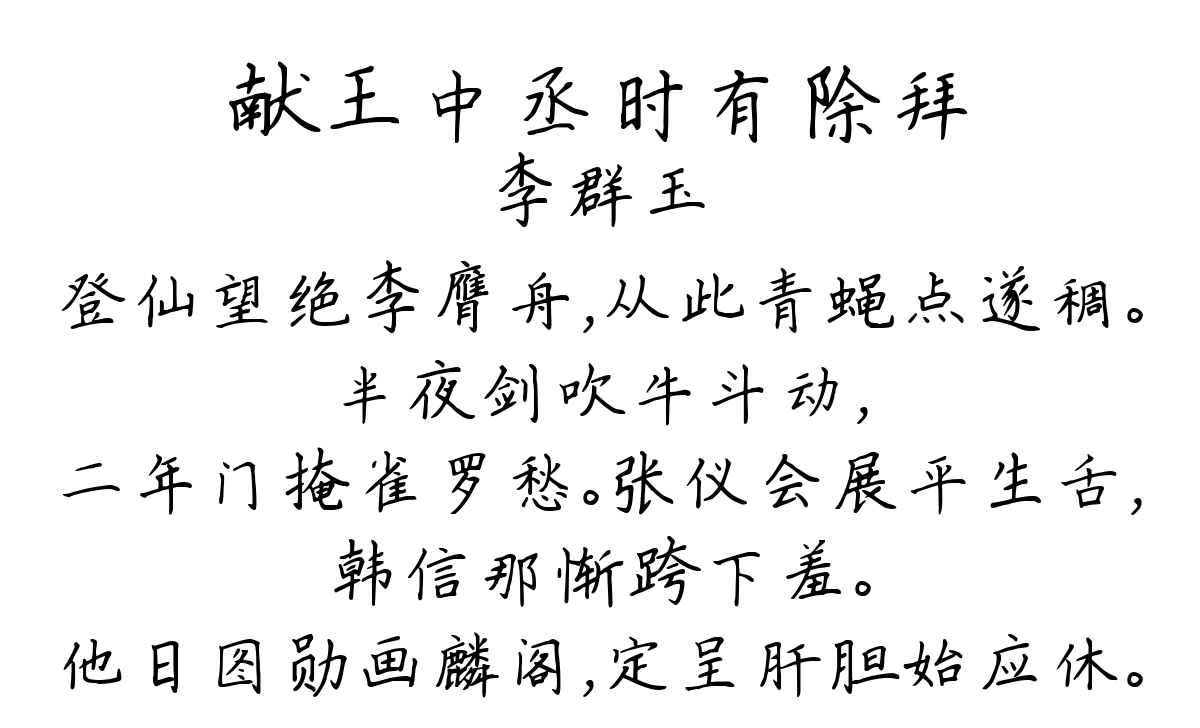 献王中丞时有除拜
李群玉
登仙望绝李膺舟,从此青蝇点遂稠。
半夜剑吹牛斗动,
二年门掩雀罗愁。张仪会展平生舌,
韩信那惭跨下羞。
他日图勋画麟阁,定呈肝胆始应休。